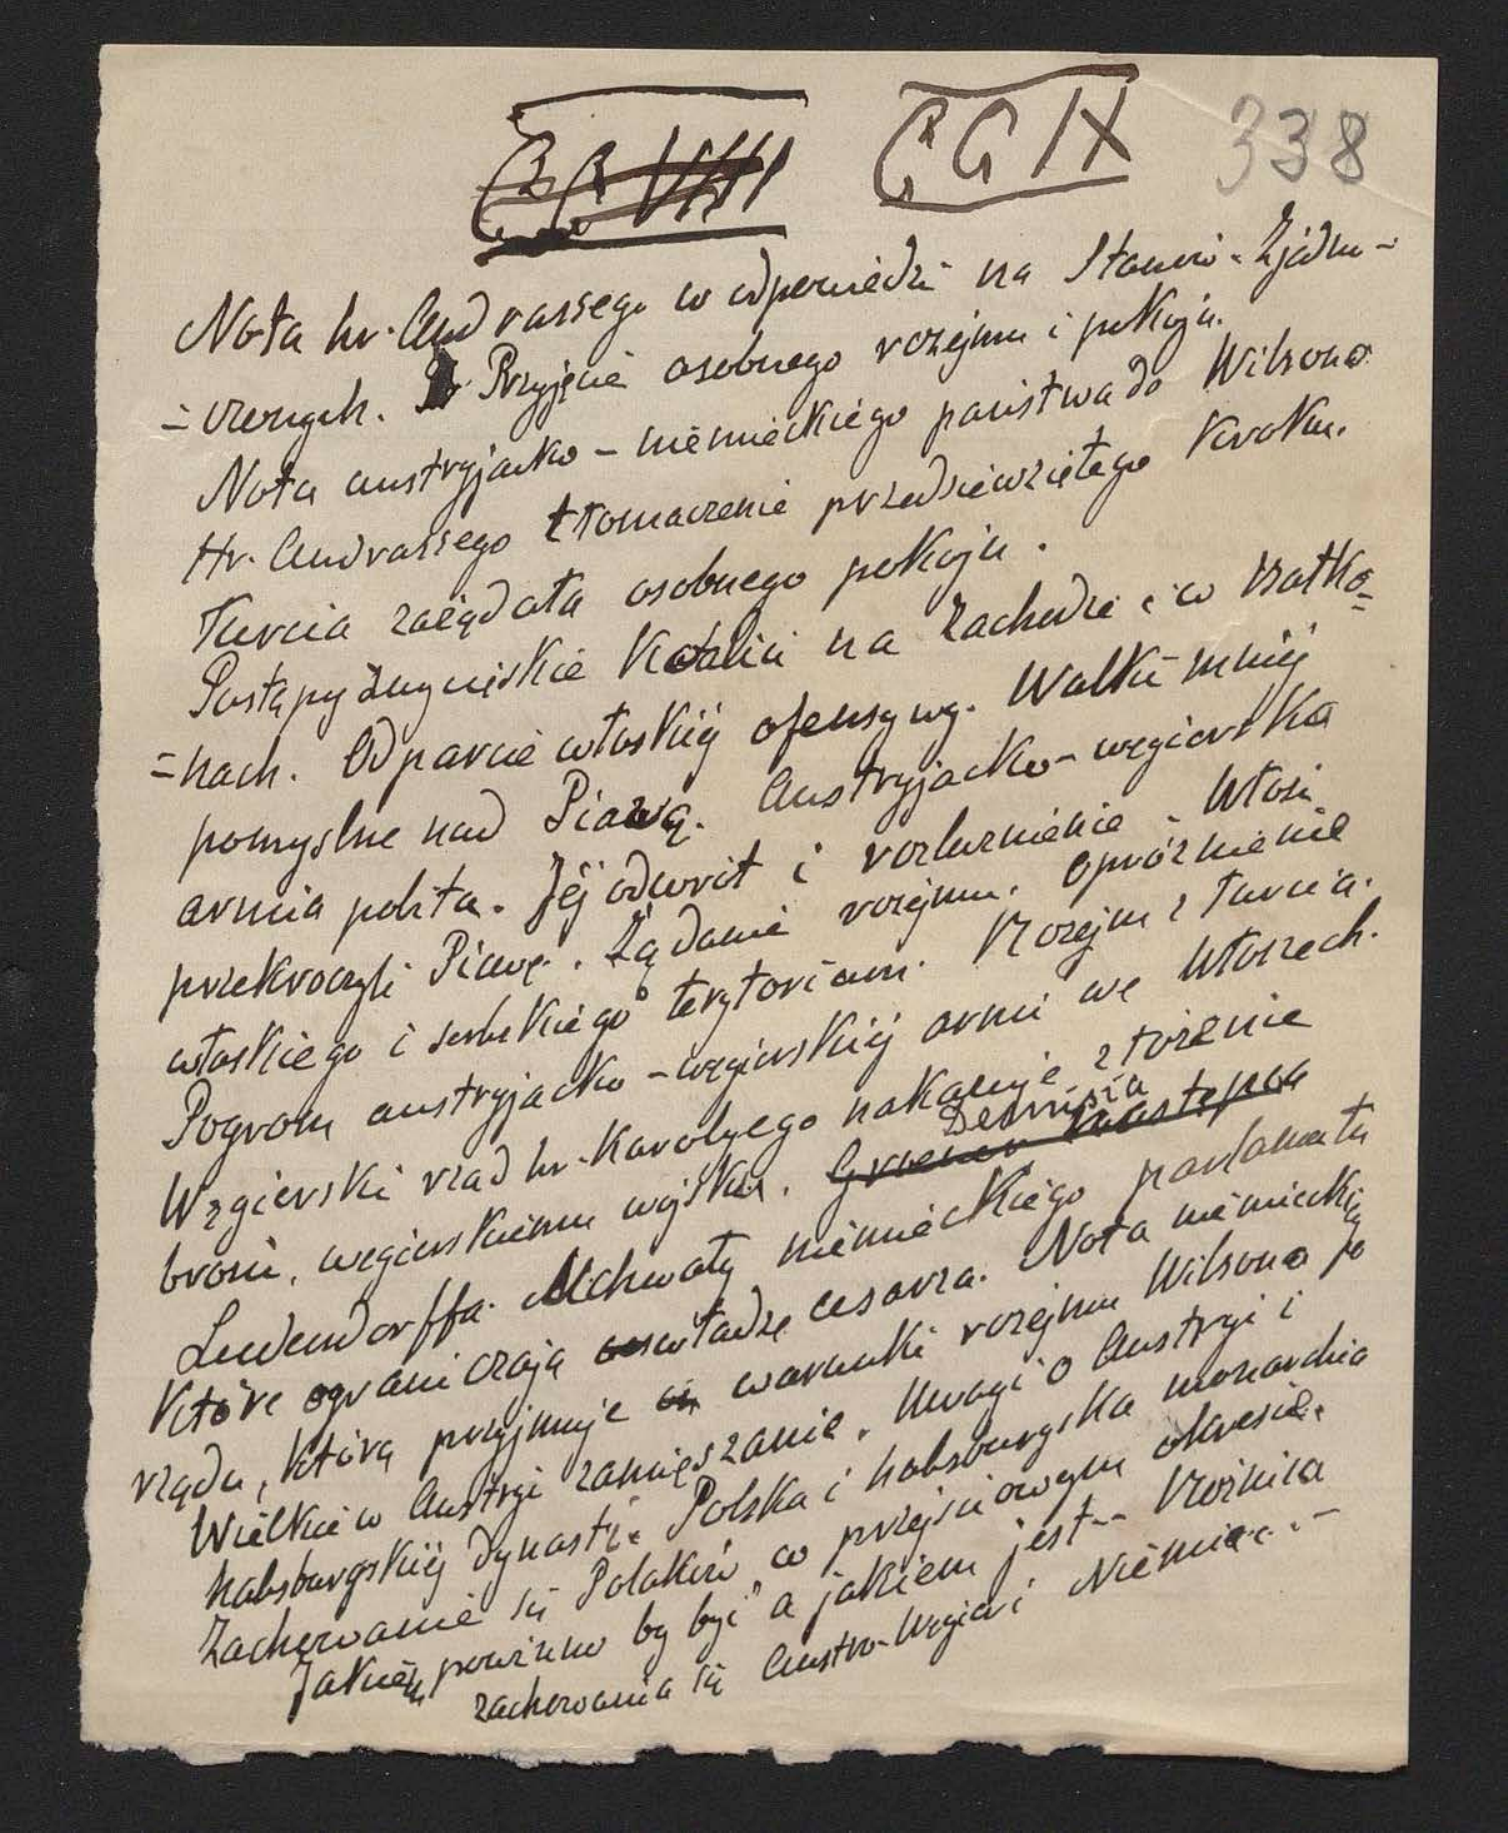 CCVIII CCIX 338
Nota hr. Andrassego w odpowiedzi na Stanów-Zjedno-
-czonych. Przyjęcie osobnego rozejmu i pokoju.
Nota austryjacko-niemieckiego państwa do Wilsona
Hr. Andrassego tłomaczenie przedsiewziętego kroku.
Turcia zażądała osobnego pokoju.
Postępy zwycięskie Koalicii na Zachodzie i w Bałka=
=nach. Odparcie włoskiéj ofensywy. Walki mniéj
pomyslne nad Piawą. Austryjacko-węgierska
armia pobita. Jéj odwrót i rozluznienie. Włosi
przekroczyli Piawę. Żądanie rozejmu. Opróżnienie
włoskiego i serbskiego terytorium. Rozejm z Turcia.
Pogrom austryjacko-węgierskiéj armii we Włoszech.
Węgierski rzad hr. Karolyego nakazuje złożenie
broni, węgierskiemu wojsku. Groener następca Demisia
Ludendorffa. Uchwały niemieckiego parlamentu
które ograniczają władze cesarza. Nota niemieckiego
rządu, którą przyjmuje warunki rozejmu Wilsona
Wielkie w Austryi zamięszanie. Uwagi o Austryi i
habsburgskiéj dynastii. Polska i habsburgska monarchia
Zachowanie się Polaków w przejsciowym okresie.
Jakiém powinno by być a jakiem jest -- Różnica
zachowania się Austro-Węgier i Niemiec...-